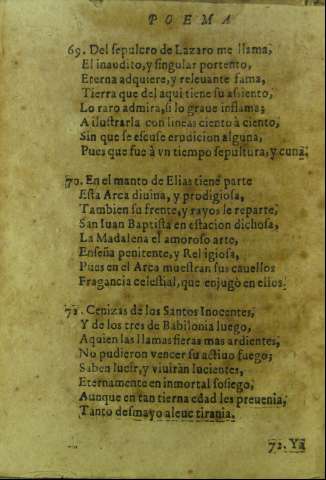 POEMA
69. Del sepulcro de Lazaro me llama,
El inaudito, y singular portento,
Eterna adquiere, y releuante fama,
Tierra que del aqui tiene su assiento,
Lo raro admira, si lo graue inflama;
A ilustrarla con lineas ciento à ciento,
Sin que se escuse erudicion alguna,
Pues que fue à vn tiempo sepultura, y cuna.
70. En el manto de Elias tiene parte
Esta Arca diuina, y prodigiosa,
Tambien su frente, y rayos le reparte,
San Iuan Baptista en estacion dichosa,
La Madalena el amoroso arte,
Enseña penitente, y Religiosa,
Pues en el Arca muestran sus cauellos
Fragancia celestial, que enjugò en ellos.
71. Cenizas de los Santos Inocentes,
Y de los tres de Babilonia luego,
A quien las llamas fieras mas ardientes,
No pudieron vencer su actiuo fuego;
Saben lucir, y viuiràn lucientes,
Eternamente en inmortal sosiego,
Aunque en tan tierna edad les preuenia,
Tanto desmayo aleue tirania.
72. Ya